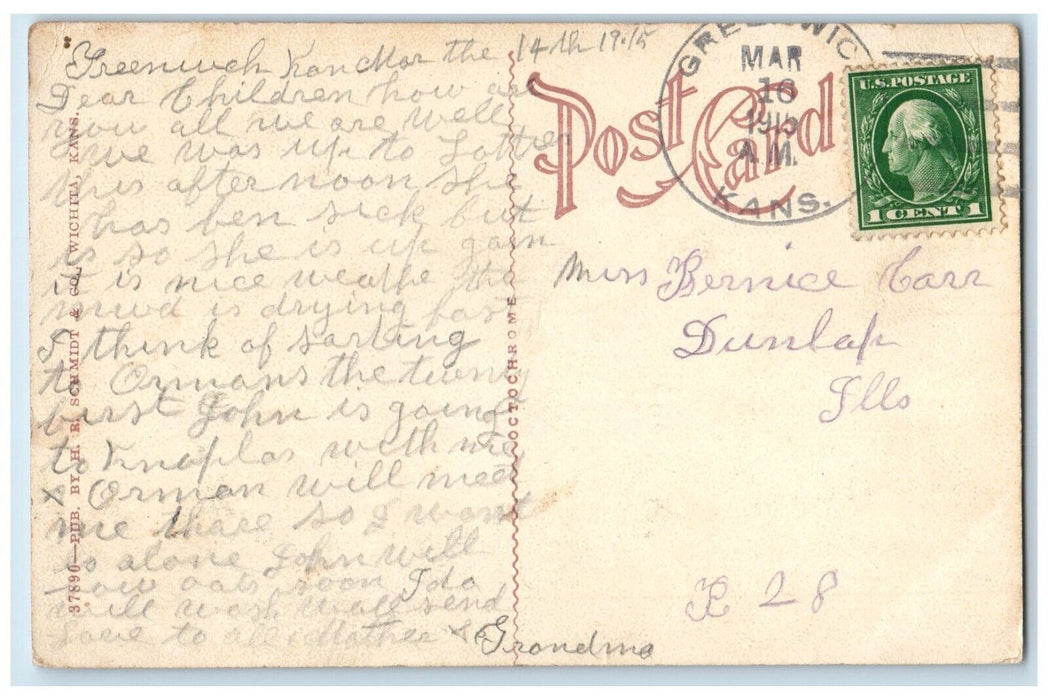 Greenwich Kan Mar the 14th 1915
Dear Children how are
you all we are well
we was up to Lottes
this afternoon she
has ben sick but
is so she is up gain
it is nice weathe the
mud is drying fast
I think of sarting
to Ormans the twenty
burst John is going
to Knoplas with me
x Orman will meet
me thare so I wont
go alone John will
sow oats soon Ida
will wash wall send
Love to all Mother &
Grandma
37890—PUB. BY H. R. SCHMIDT & CO., WICHITA, KANS.
OCTOCHROME
Post Card
GREENWICH
MAR
16
1915
A.M.
KANS.
U.S. POSTAGE
1 CENT 1
Miss Bernice Carr
Dunlap
Ills
R 28